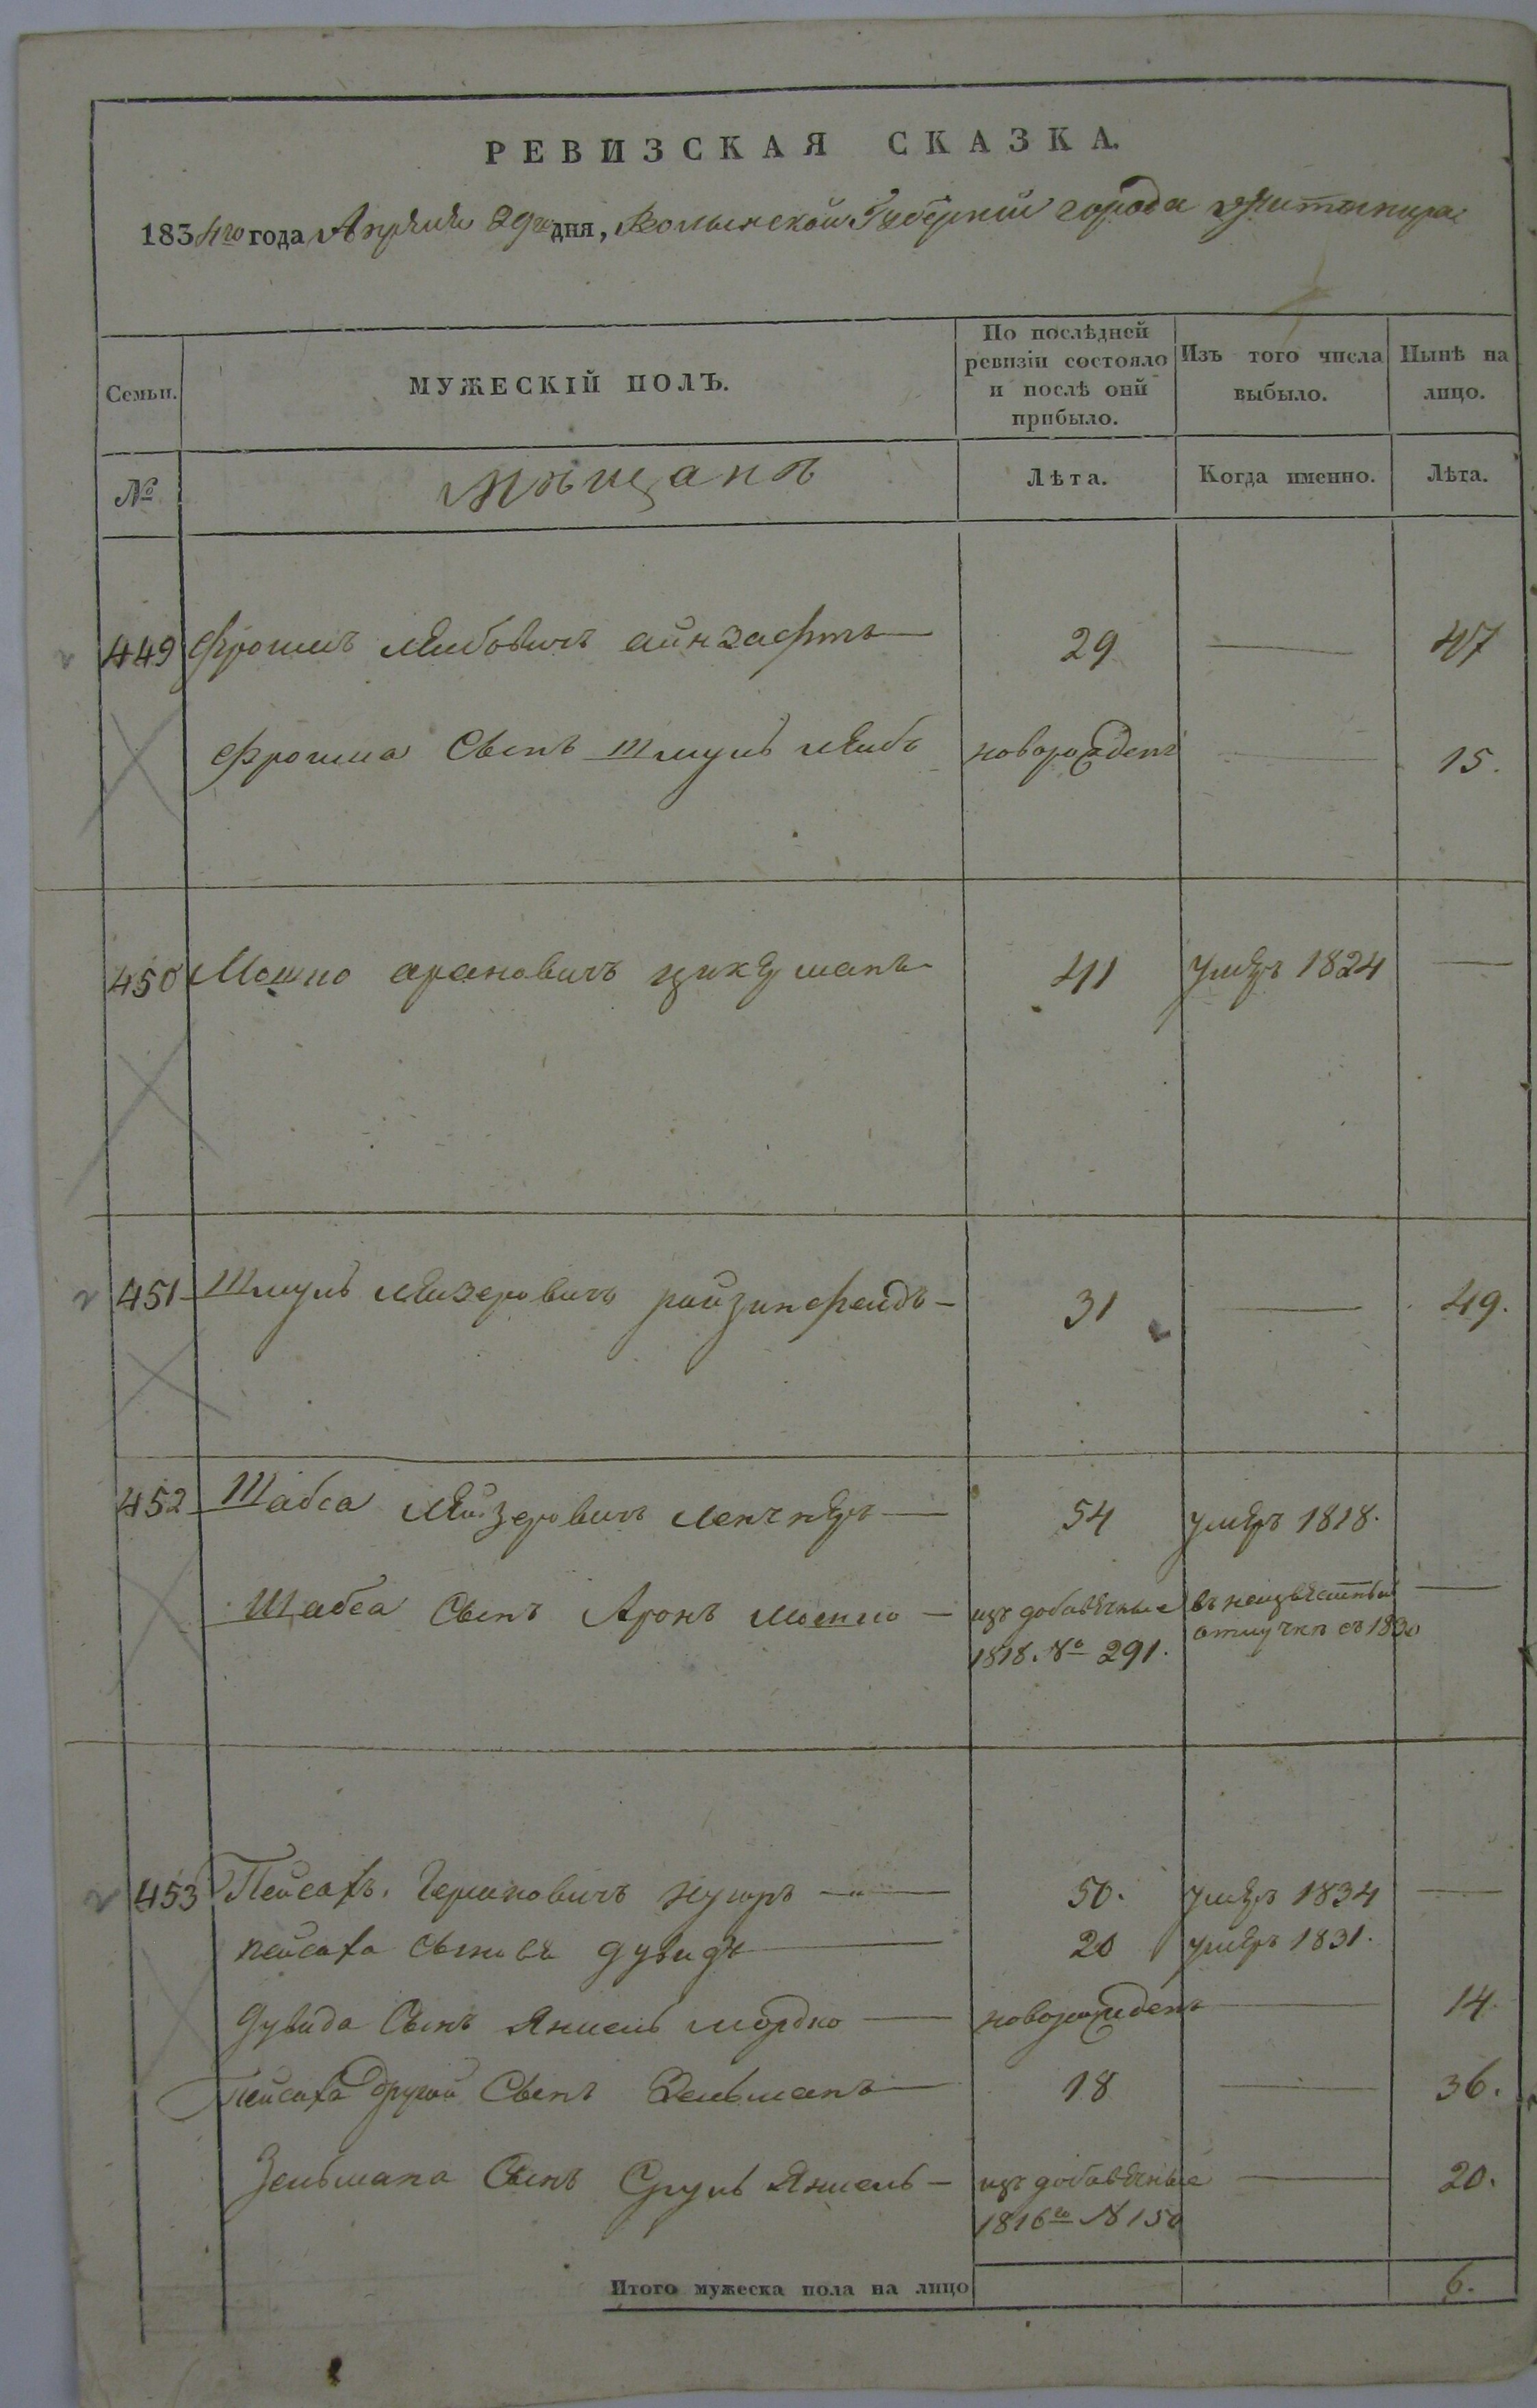 РЕВИЗСКАЯ СКАЗКА.
1834го года Апреля 29го дня, Волынской Губернии города Житомира
Семьи.
МУЖЕСКІЙ ПОЛЪ.
По послѣдней ревизіи состояло и послѣ онй прибыло.
Изъ того числа выбыло.
Нынѣ на лицо.
№
Мѣщанъ
Лѣта.
Когда именно.
Лѣта.
449 Фроимъ Лейбовичъ Айнзафтъ — 29 — 47
Фроима Сынъ Шмуль Лейбъ новорожденъ — 15.
450 Мошко Ароновичъ 41 умеръ 1824 —
451 Шмуль Лейзеровичъ 31 — 49.
452 Шабса Лейзеровичъ — 54 умеръ 1818.
Шабса Сынъ Аронъ Мошко — изъ добавочные въ неизвестный —
1818. № 291. отлучки съ 1830
453 Пейсахъ Гершковичъ — 50. умеръ 1834 —
Пейсаха Сыновя Дувидъ — 20 умеръ 1831.
Дувида Сынъ Янкель Мордко — новорожденъ — 14
Пейсаха другой Сынъ Зельманъ — 18 — 36.
Зельмана Сынъ Сруль Янкель — изъ добавочные — 20.
1816го № 150
Итого мужеска пола на лицо 6.